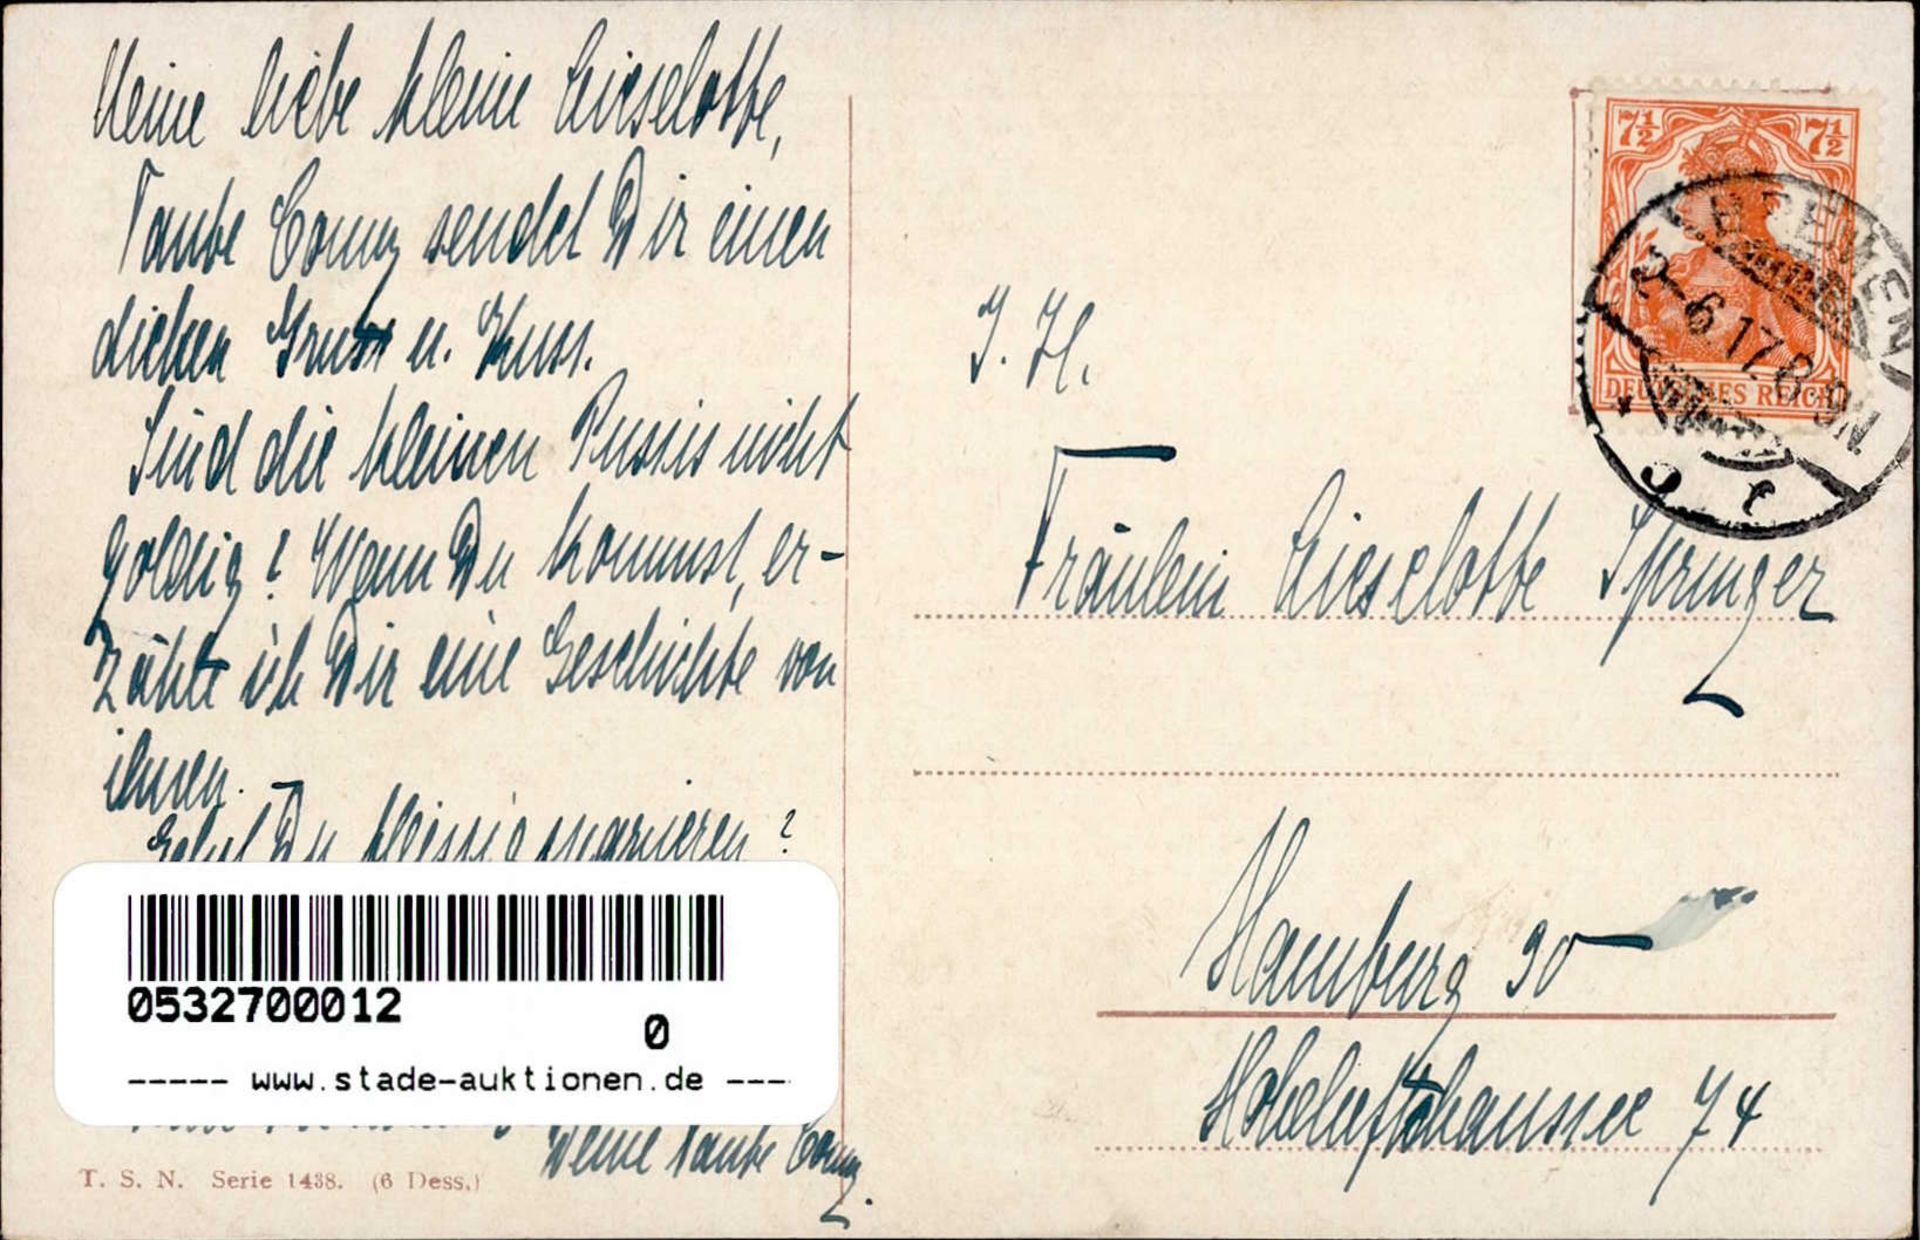 Meine liebe kleine Lieselotte,
Tante Conny sendet Dir einen
dicken Gruss u. Kuss.
Sind die kleinen Pussis nicht
goldig? Wenn Du kommst, er-
zähle ich Dir eine Geschichte von
ihnen.
Gehst Du fleissig spazieren?
Deine Tante Conny.
T. S. N. Serie 1438. (6 Dess.)
0532700012
0
----- www.stade-auktionen.de ---
7½ 7½
DEUTSCHES REICH
BREMEN
2.6.17.8-9N
* 5 e
J. H.
Fräulein Lieselotte Springer
Hamburg 30
Hoheluftchaussee 74